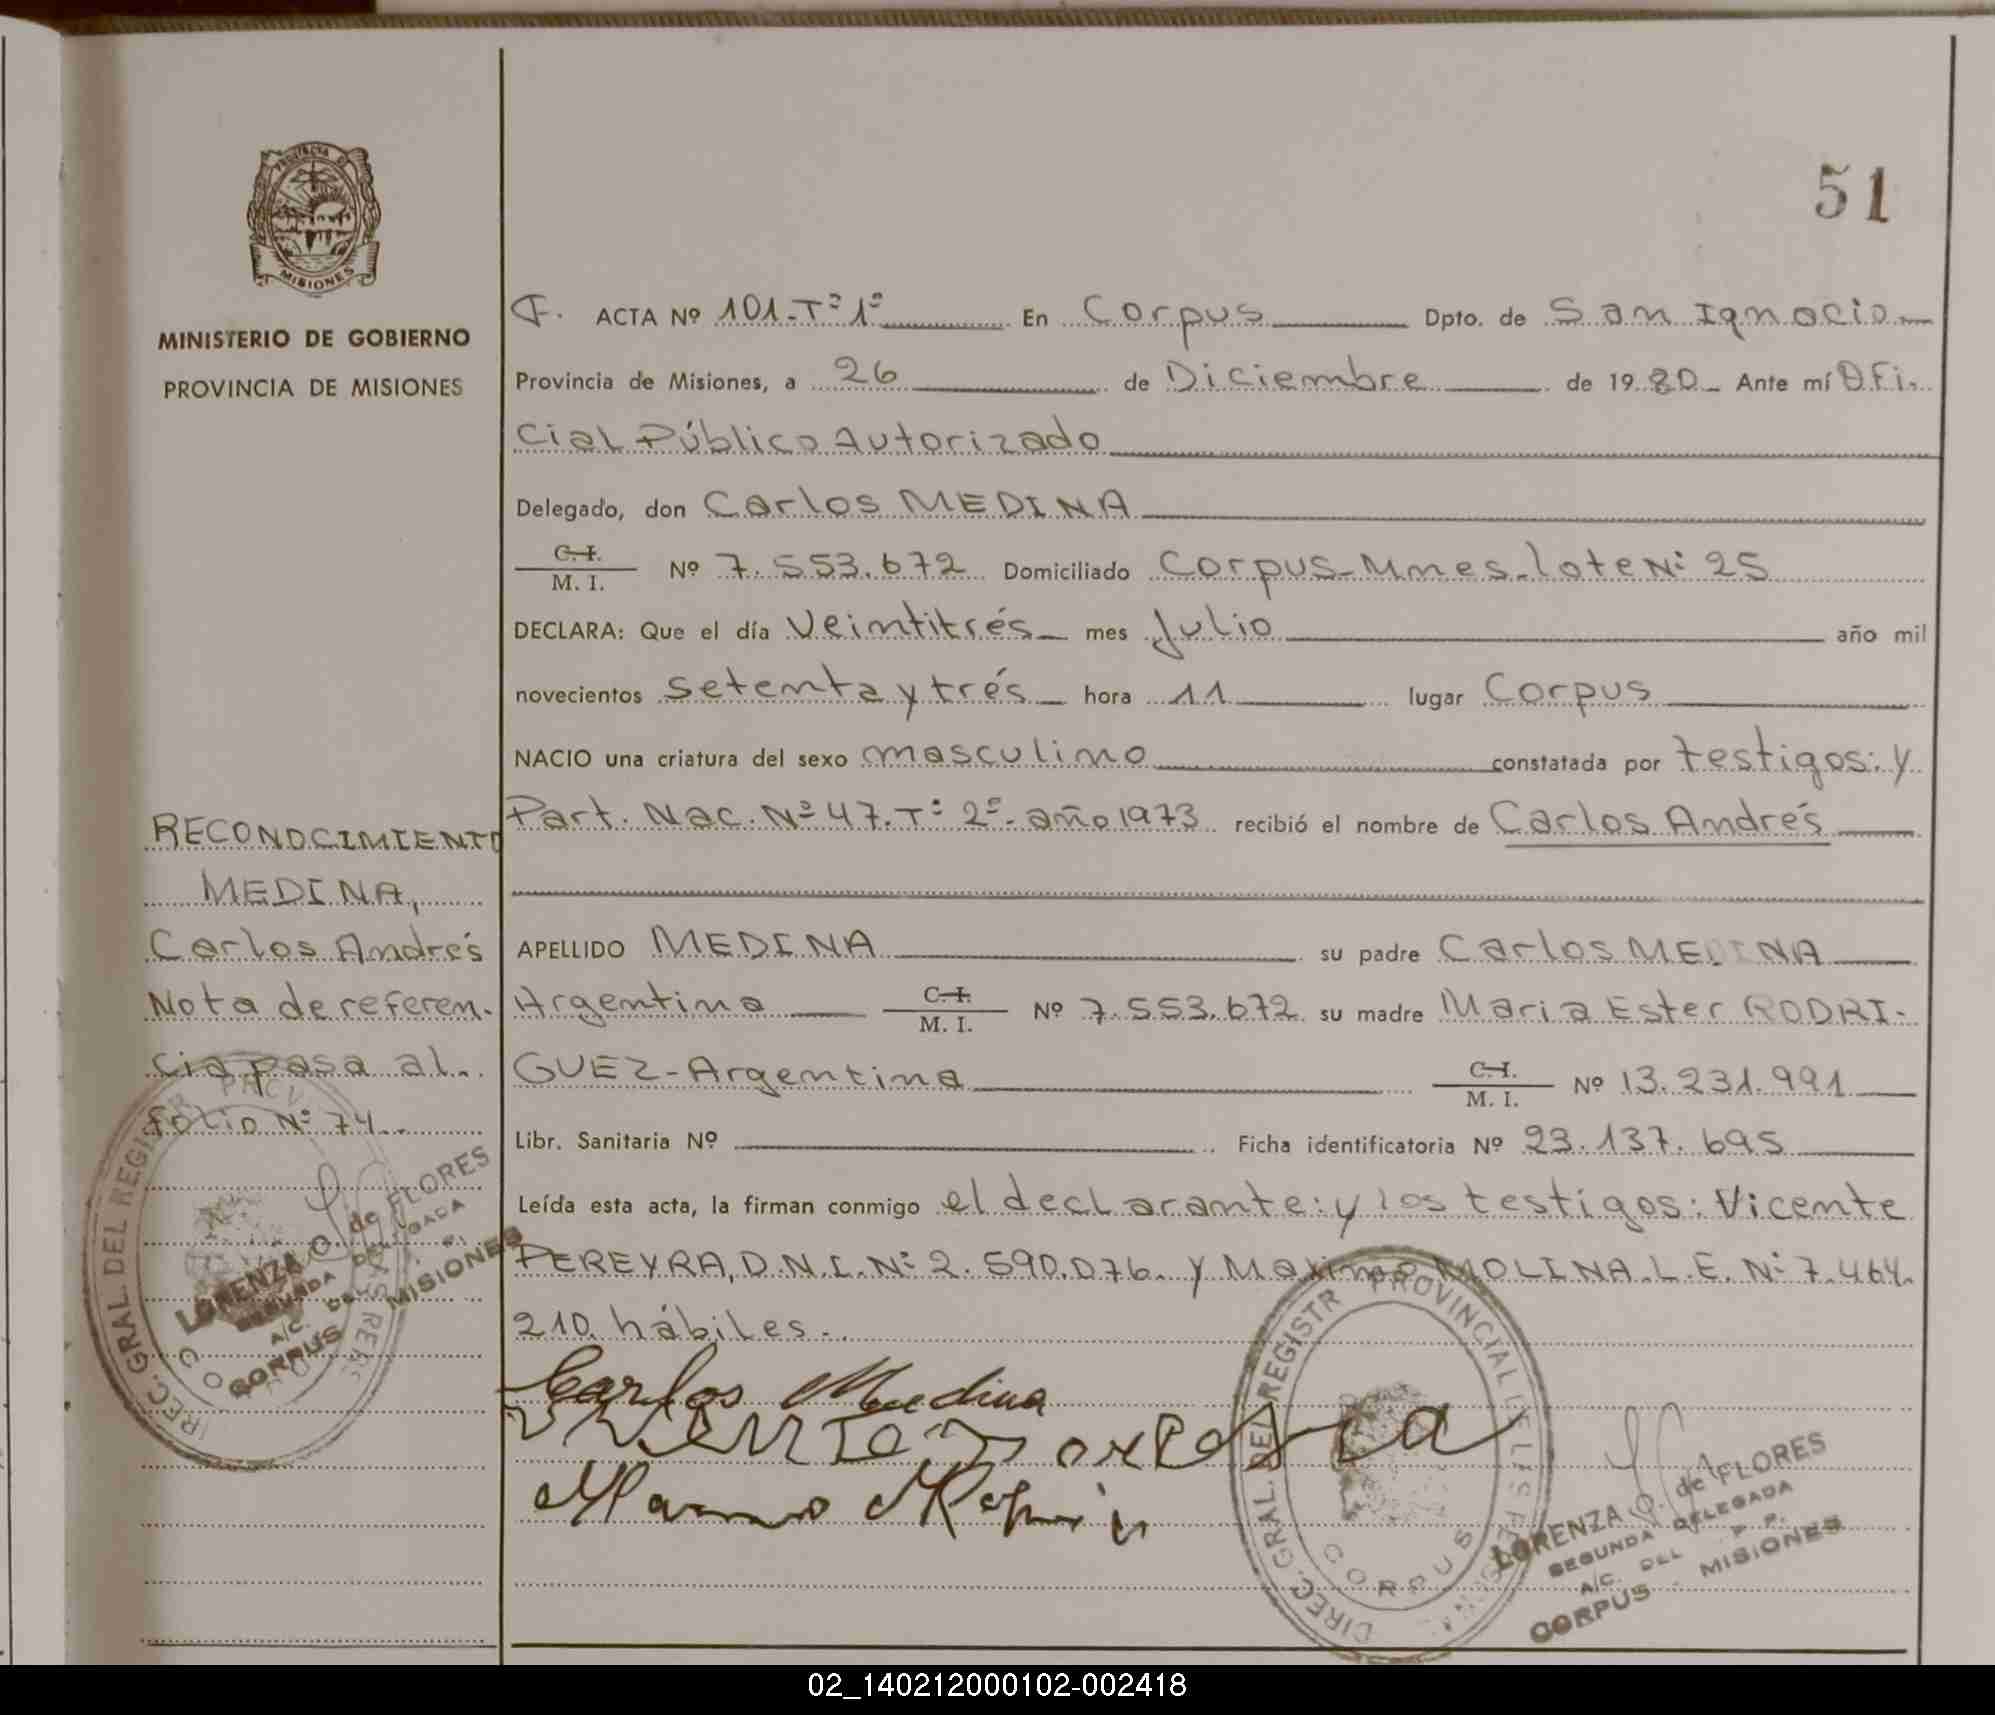 51
PROVINCIA DE
MISIONES
MINISTERIO DE GOBIERNO
PROVINCIA DE MISIONES
F. ACTA Nº 101-Tº 1º En Corpus Dpto. de San Ignacio
Provincia de Misiones, a 26 de Diciembre de 1980 Ante mí Ofi.
cial Público Autorizado
Delegado, don Carlos MEDINA
C. I.
M. I. Nº 7.553.672 Domiciliado Corpus-Mnes-lote Nº 25
DECLARA: Que el día Veintitrés mes Julio año mil
novecientos setenta y trés hora 11 lugar Corpus
NACIO una criatura del sexo masculino constatada por testigos: y
Part. Nac. Nº 47. Tº 2º. año 1973 recibió el nombre de Carlos Andrés
APELLIDO MEDINA su padre Carlos MEDINA
Argentina C. I.
M. I. Nº 7.553.672 su madre Maria Ester RODRI-
GUEZ-Argentina C. I.
M. I. Nº 13.231.991
Libr. Sanitaria Nº Ficha identificatoria Nº 23.137.695
Leída esta acta, la firman conmigo el declarante: y los testigos: Vicente
PEREYRA, D.N.I. Nº 2.590.076. y Maximo MOLINA. L.E. Nº 7.464.
210. hábiles.
Carlos Medina
RECONOCIMIENTO
MEDINA,
Carlos Andrés
Nota de referen.
cia pasa al.
folio Nº 74.
DIREC. GRAL. DEL REGISTR PROVINCIAL DE LAS PERSONAS
CORPUS
LORENZA O. de FLORES
SEGUNDA DELEGADA
A/C. DEL R. P.
CORPUS - MISIONES
DIREC. GRAL. DEL REGISTR PROVINCIAL DE LAS PERSONAS
CORPUS
LORENZA O. de FLORES
SEGUNDA DELEGADA
A/C. DEL R. P.
CORPUS - MISIONES
02_140212000102-002418